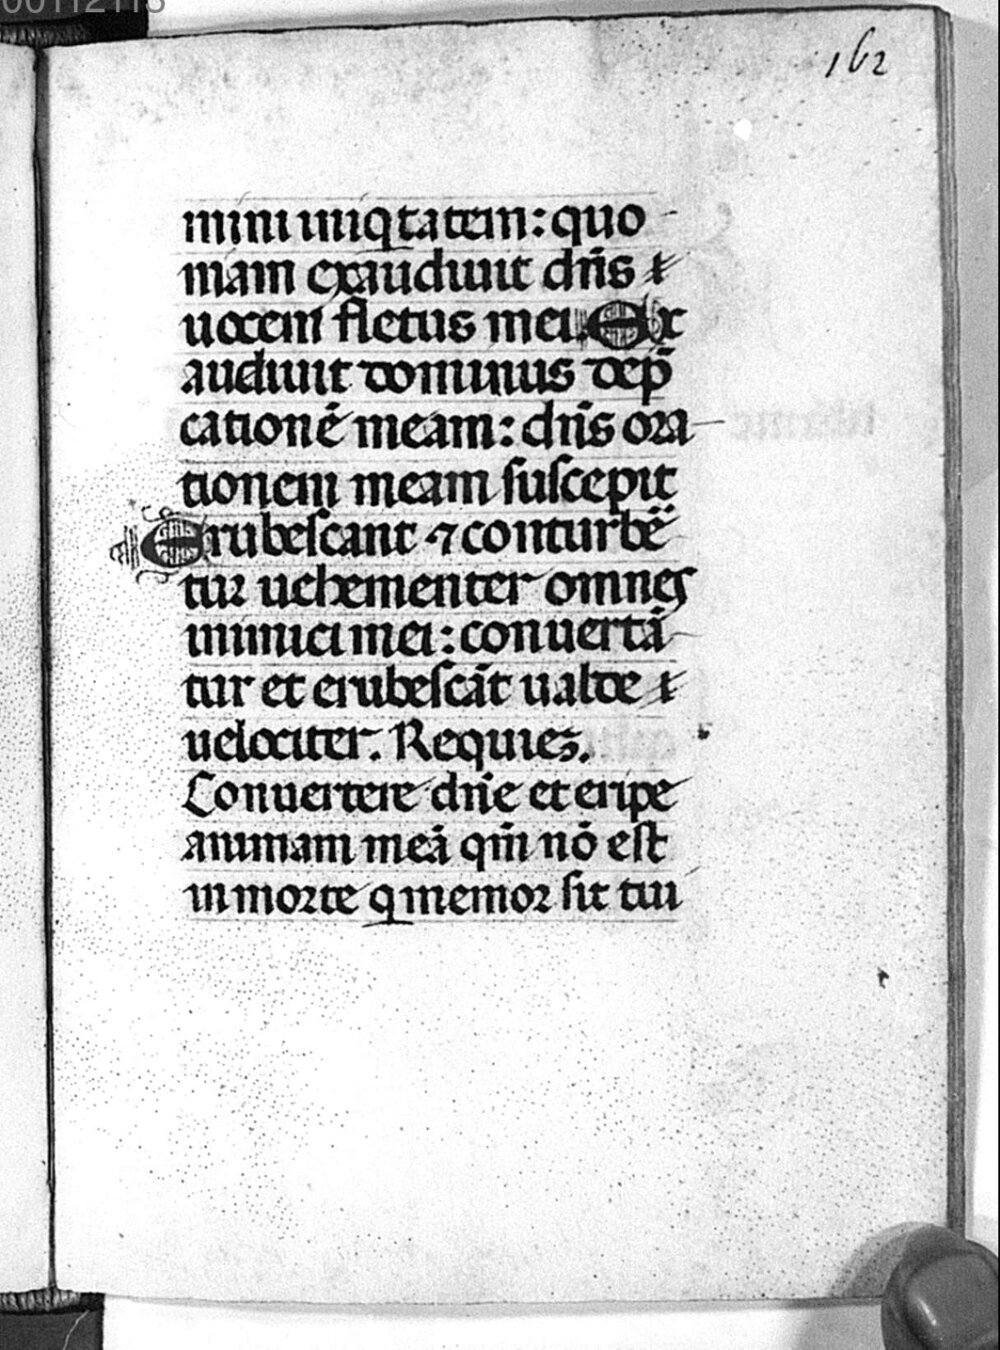 00112113
162
mini iniq̱tatem: quo
niam exaudiuit dn̄s
uocem fletus mei. Ex
audiuit dominus dep̄
cationē meam: dn̄s ora
tionem meam suscepit
Erubescant ⁊ conturbē
tur uehementer omnes
inimici mei: conuertā
tur et erubescāt ualde
uelociter. Requiē.
Conuertere dn̄e et eripe
animam meā qm̄ nō est
in morte q̱ memor sit tui